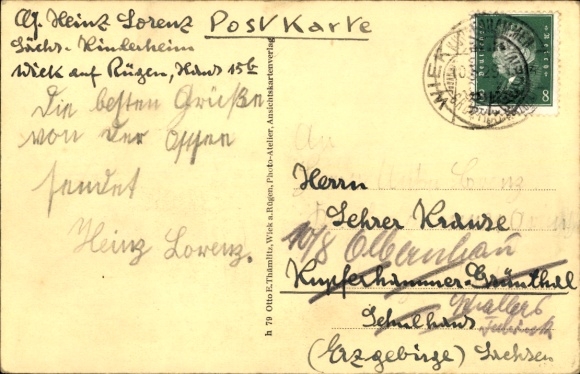 Abf. Heinz Lorenz
Sächs. Kinderheim
Wiek auf Rügen, Haus 15b
Postkarte
Die besten Grüße
von der Ostsee
sendet
Heinz Lorenz.
h 79 Otto E. Thämlitz, Wiek a. Rügen, Photo-Atelier, Ansichtskartenverlag
WIEK
8
An
Herrn
Lehrer Krauze
10/8 Olbernhau
Kupferhammer-Grünthal
Schulhaus
(Erzgebirge) Sachsen